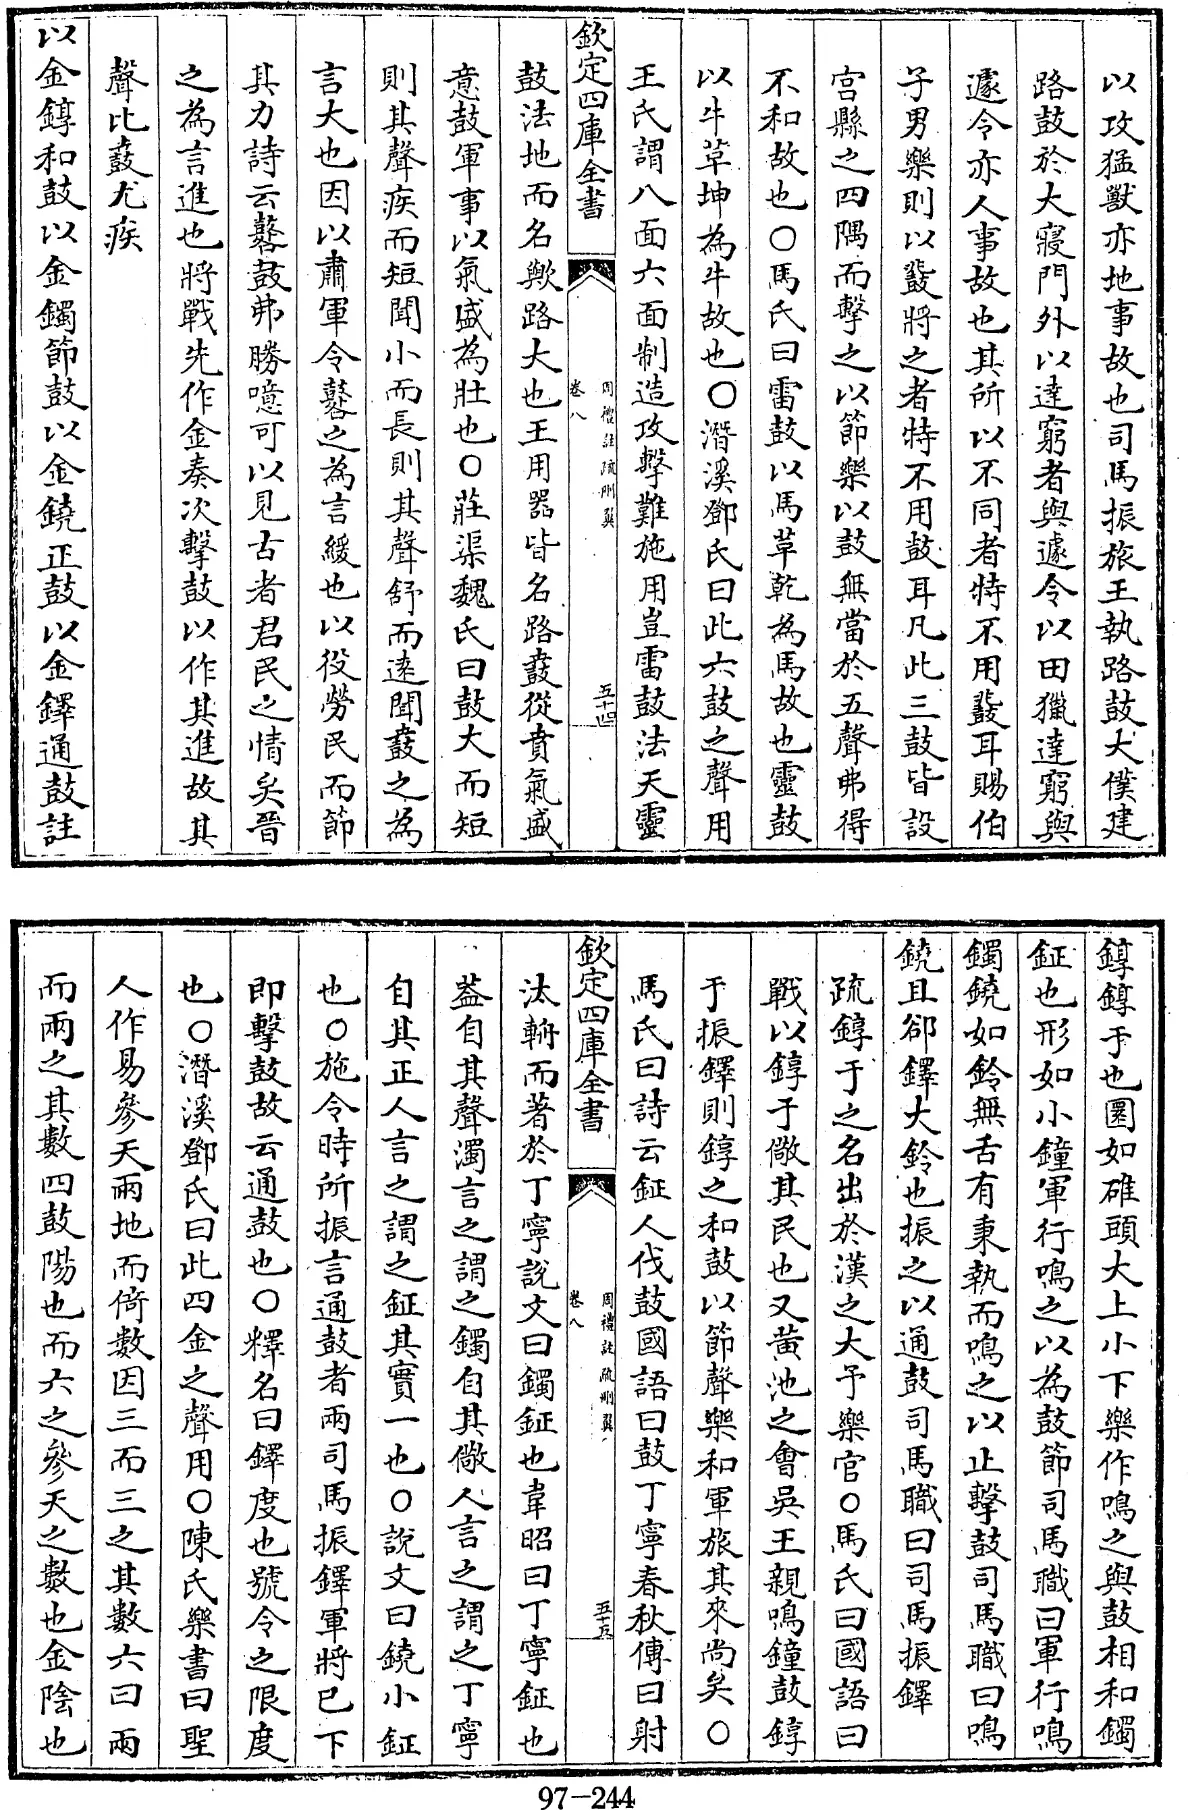 以攻猛獸亦地事故也司馬振旅王執路鼓大僕建
路鼓於大寢門外以達窮者與遽令以田獵達窮與
遽令亦人事故也其所以不同者特不用鼖耳賜伯
子男樂則以鼗將之者特不用鼓耳凡此三鼓皆設
宫縣之四隅而擊之以節樂以鼓無當於五聲弗得
不和故也〇馬氏曰雷鼓以馬革乾為馬故也靈鼓
以牛革坤為牛故也〇潛溪鄧氏曰此六鼓之聲用
王氏謂八面六面制造攻擊難施用豈雷鼓法天靈
欽定四庫全書
周禮註疏刪翼
卷八
五十四
鼓法地而名歟路大也王用器皆名路鼖從賁氣盛
意鼓軍事以氣盛為壯也〇莊渠魏氏曰鼓大而短
則其聲疾而短聞小而長則其聲舒而遠聞鼖之為
言大也因以肅軍令鼛之為言緩也以役勞民而節
其力詩云鼛鼓弗勝噫可以見古者君民之情矣晉
之為言進也將戰先作金奏次擊鼓以作其進故其
聲比鼖尤疾
以金錞和鼓以金鐲節鼓以金鐃正鼓以金鐸通鼓註
錞錞于也圜如碓頭大上小下樂作鳴之與鼓相和鐲
鉦也形如小鐘軍行鳴之以為鼓節司馬職曰軍行鳴
鐲鐃如鈴無舌有秉執而鳴之以止擊鼓司馬職曰鳴
鐃且郤鐸大鈴也振之以通鼓司馬職曰司馬振鐸
疏錞于之名出於漢之大予樂官〇馬氏曰國語曰
戰以錞于儆其民也又黄池之會吳王親鳴鐘鼓錞
于振鐸則錞之和鼓以節聲樂和軍旅其來尚矣〇
馬氏曰詩云鉦人伐鼓國語曰鼓丁寧春秋傳曰射
欽定四庫全書
周禮註疏刪翼
卷八
五十五
汰輈而著於丁寧説文曰鐲鉦也韋昭曰丁寧鉦也
蓋自其聲濁言之謂之鐲自其儆人言之謂之丁寧
自其正人言之謂之鉦其實一也〇説文曰鐃小鉦
也〇施令時所振言通鼓者兩司馬振鐸軍將已下
即擊鼓故云通鼓也〇釋名曰鐸度也號令之限度
也〇潛溪鄧氏曰此四金之聲用〇陳氏樂書曰聖
人作易參天兩地而倚數因三而三之其數六曰兩
而兩之其數四鼓陽也而六之參天之數也金陰也
97-244